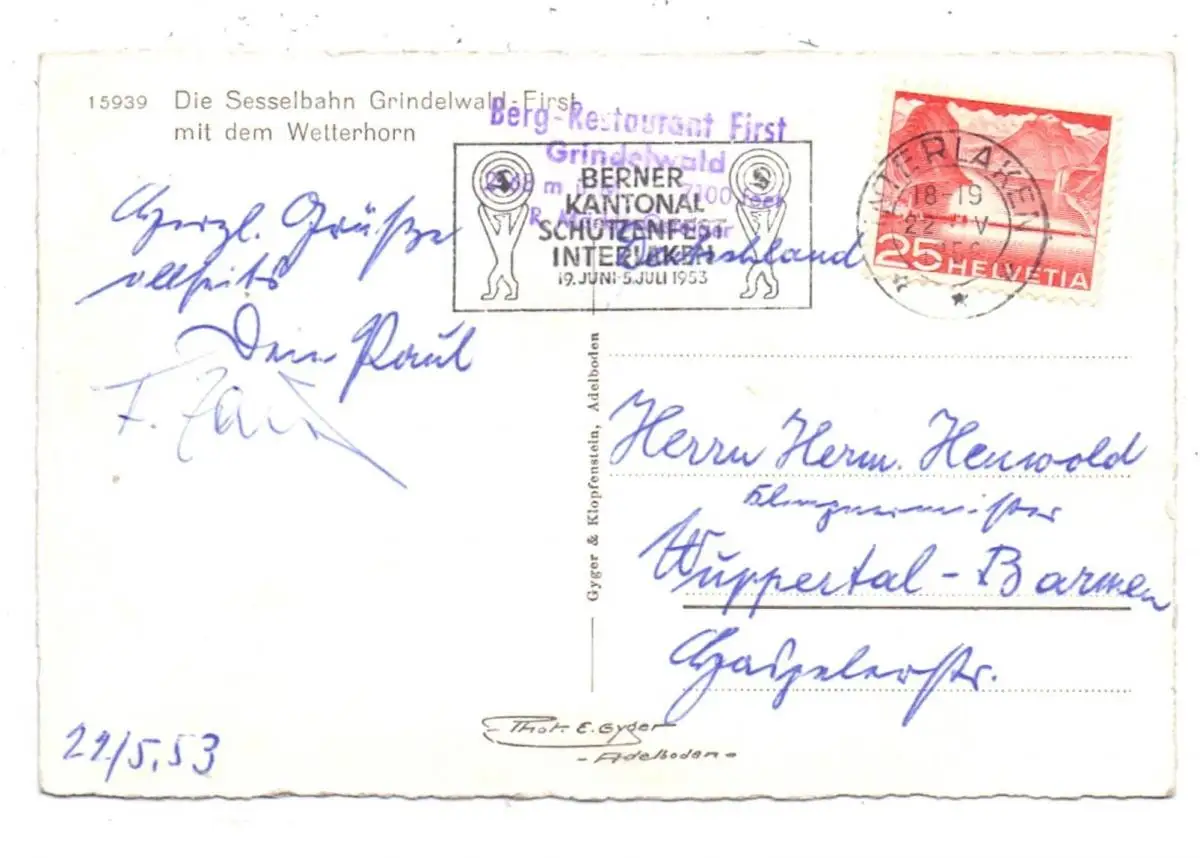 15939 Die Sesselbahn Grindelwald-First
mit dem Wetterhorn
Berg-Restaurant First
Grindelwald
7100 feet
BERNER
KANTONAL
SCHÜTZENFEST
INTERLAKEN
19.JUNI-5.JULI 1953
INTERLAKEN
18-19
22 V
25 HELVETIA
Herzl. Grüße
allseits
Dein Paul
F.
22/5.53
Deutschland
Herrn Herm. Henwold
Klempnermeister
Wuppertal-Barmen
Haspelerstr.
Gyger & Klopfenstein, Adelboden
Phot. E. Gyger
- Adelboden -